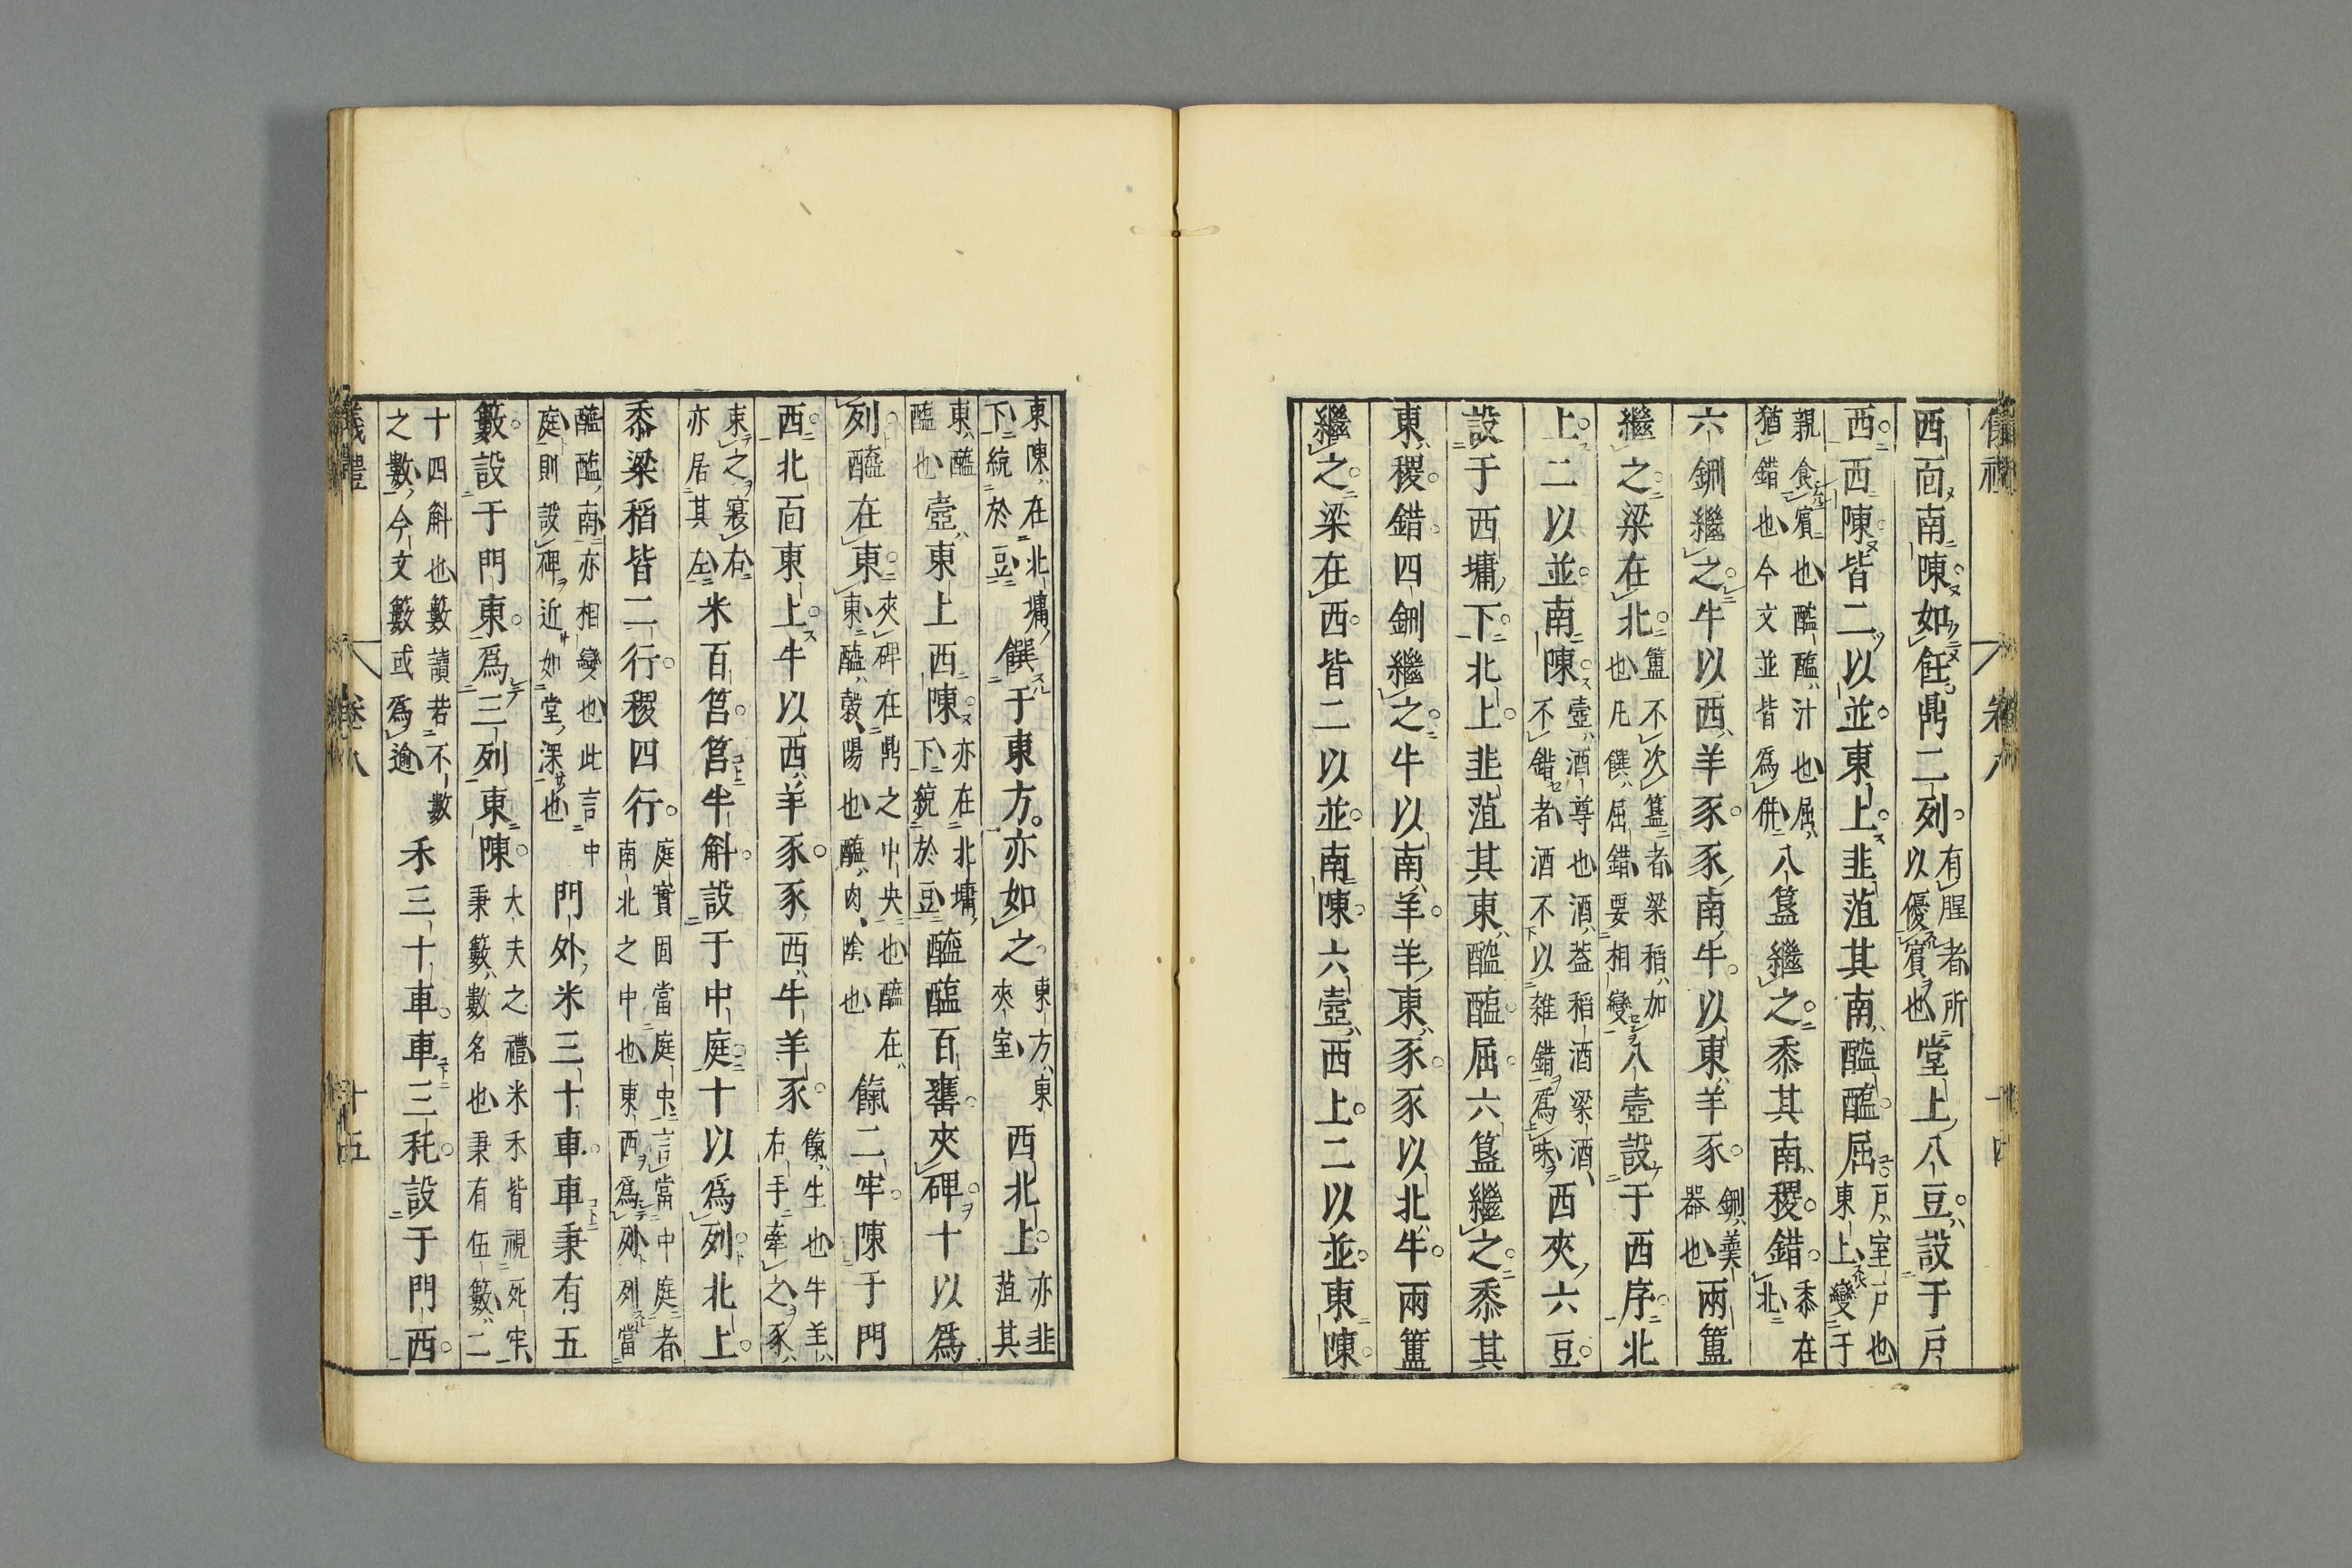 儀禮 卷八 十四
西面南陳如飪鼎二列有腥者所以優賓也堂上八豆設于戶
西西陳皆二以並東上韭菹其南醓醢屈戶室戶也東上變于
親食賓也醓醢汁也屈猶錯也今文並皆爲併八簋繼之黍其南稷錯黍在北
六鉶繼之牛以西羊豕豕南牛以東羊豕鉶羹器也兩簠
繼之梁在北簠不次簋者梁稻加也凡饌屈錯要相變八壺設于西序北
上二以並南陳壺酒尊也酒蓋稻酒梁酒不錯者酒不以雜錯爲味西夾六豆
設于西墉下北上韭菹其東醓醢屈六簋繼之黍其
東稷錯四鉶繼之牛以南羊羊東豕豕以北牛兩簠
繼之梁在西皆二以並南陳六壺西上二以並東陳
東陳在北墉下統於豆饌于東方亦如之東方東夾室西北上亦韭菹其
東醓醢也壺東上西陳亦在北墉下統於豆醯醢百罋夾碑十以爲
列醯在東夾碑在鼎之中央也醯在東醯穀陽也醢肉陰也餼二牢陳于門
西北面東上牛以西羊豕豕西牛羊豕餼生也牛羊右手牽之豕
東之寢右亦居其左米百筥筥半斛設于中庭十以爲列北上
黍梁稻皆二行稷四行庭實固當庭中言當中庭者南北之中也東西爲列列當
醯醢南亦相變也此言中庭則設碑近如堂深也門外米三十車車秉有五
籔設于門東爲三列東陳大夫之禮米禾皆視死牢秉籔數名也秉有伍籔二
十四斛也籔讀若不數之數今文籔或爲逾禾三十車車三秅設于門西
儀禮 卷八 十五